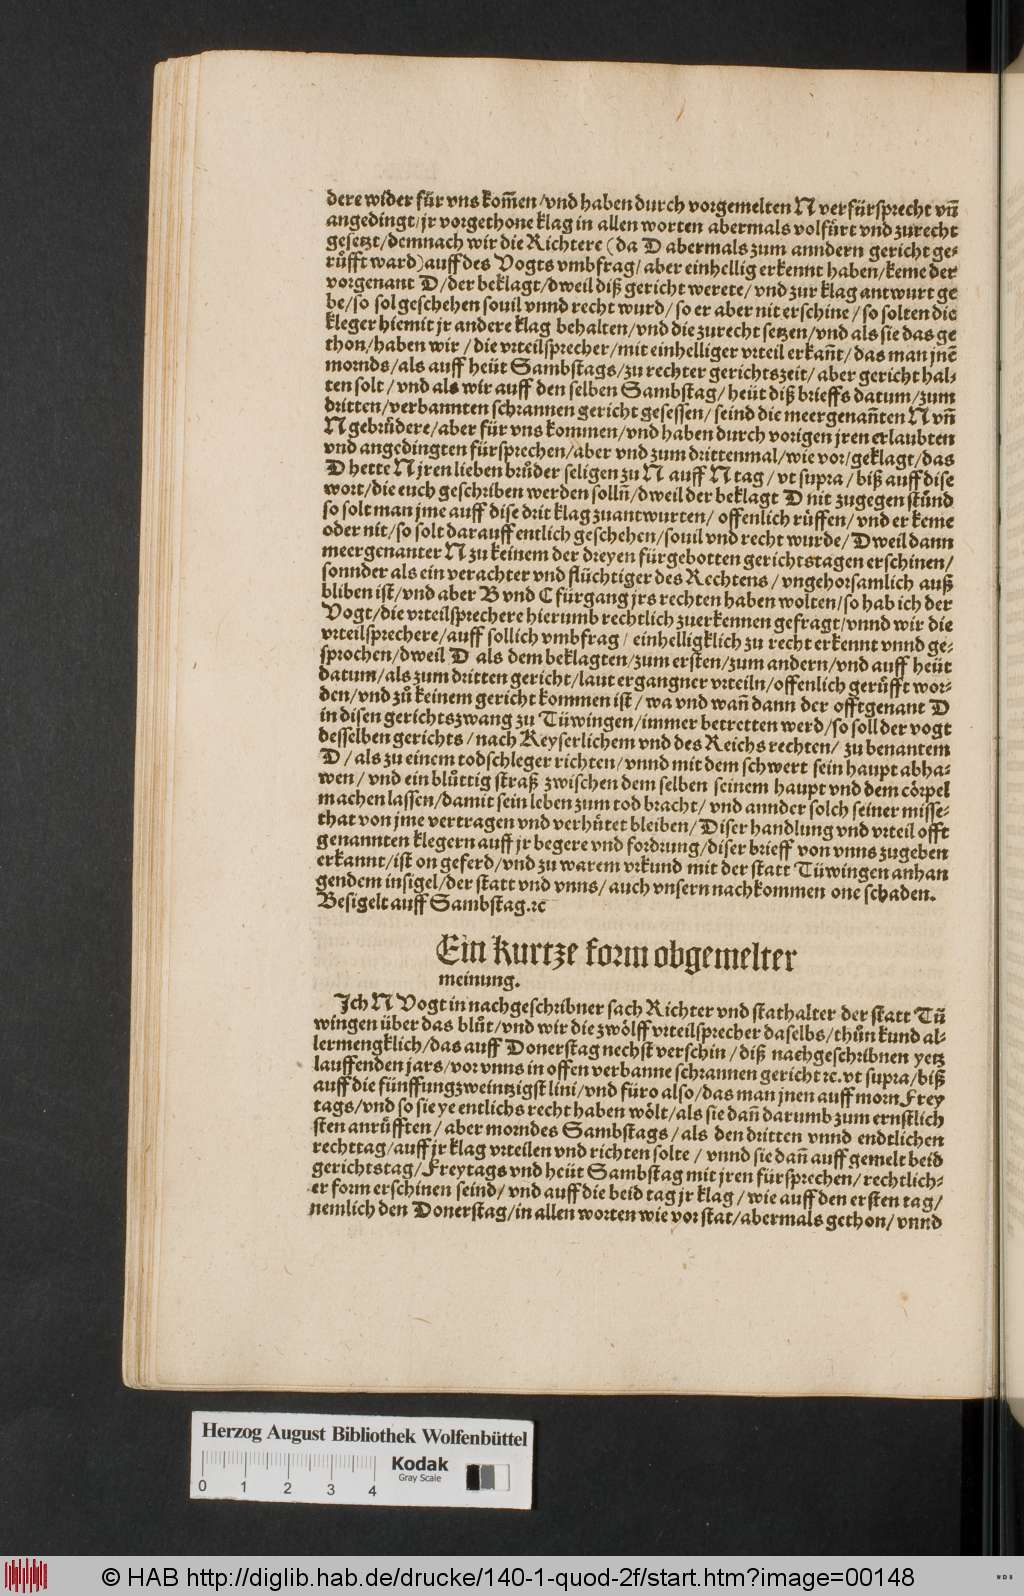 dere wider für vns kom̃en /vnd haben durch vorgemelten N verfürsprecht vñ
angedingt/jr vorgethone klag in allen worten abermals volfůrt vnd zurecht
gesetzt/demnach wir die Richtere (da D abermals zum anndern gericht ge-
růfft ward)auff des Vogts vmbfrag/ aber einhellig erkennt haben/keme der
vorgenant D/der beklagt/dweil diß gericht werete/ vnd zur klag antwurt ge
be/so sol geschehen souil vnnd recht wurd/ so er aber nit erschine/ so solten die
kleger hiemit jr andere klag behalten/vnd die zurecht setzen/vnd als sie das ge
thon/haben wir / die vrteilsprecher/mit einhelliger vrteil erkañt/das man jnẽ
mornds/als auff heüt Sambstags/zu rechter gerichtszeit/ aber gericht hal-
ten solt / vnd als wir auff den selben Sambstag/ heüt diß brieffs datum/zum
dritten/verbannten schrannen gericht gesessen/ seind die meergenañten N vñ
N gebrůdere/aber für vns kommen/vnd haben durch vorigen jren erlaubten
vnd angedingten fürsprechen/aber vnd zum drittenmal/wie vor/geklagt/das
D hette N jren lieben brůder seligen zu N auff N tag / vt supra / biß auff dise
wort/die euch geschriben werden solln̄/dweil der beklagt D nit zugegen stůnd
so solt man jme auff dise drit klag zuantwurten/ offenlich růffen/ vnd er keme
oder nit/so solt darauff entlich geschehen/souil vnd recht wurde/ Dweil dann
meergenanter N zu keinem der dreyen fürgebotten gerichtstagen erschinen/
sonnder als ein verachter vnd flüchtiger des Rechtens / vngehorsamlich auß
bliben ist/vnd aber B vnd C fürgang jrs rechten haben wolten/so hab ich der
Vogt/die vrteilsprechere hierumb rechtlich zuerkennen gefragt/vnnd wir die
vrteilsprechere/auff sollich vmbfrag / einhelligklich zu recht erkennt vnnd ge-
sprochen/dweil D als dem beklagten/zum ersten/zum andern/vnd auff heüt
datum/als zum dritten gericht/laut ergangner vrteiln/offenlich gerůfft wor-
den/vnd zů keinem gericht kommen ist / wa vnd wañ dann der offtgenant D
in disen gerichtszwang zu Tüwingen/immer betretten werd/so soll der vogt
desselben gerichts / nach Keyserlichem vnd des Reichs rechten/ zu benantem
D / als zu einem todschleger richten/ vnnd mit dem schwert sein haupt abha-
wen / vnd ein blůttig straß zwischen dem selben seinem haupt vnd dem cörpel
machen lassen/damit sein leben zum tod bracht/ vnd annder solch seiner misse-
that von jme vertragen vnd verhůtet bleiben/ Diser handlung vnd vrteil offt
genannten klegern auff jr begere vnd fordrung/diser brieff von vnns zugeben
erkannt/ist on geferd/vnd zu warem vrkund mit der statt Tüwingen anhan
gendem insigel/der statt vnd vnns/ auch vnsern nachkommen one schaden.
Besigelt auff Sambstag.ꝛc
Ein kurtze form obgemelter
meinung.
Ich N Vogt in nachgeschribner sach Richter vnd stathalter der statt Tü
wingen über das blůt/vnd wir die zwölff vrteilsprecher daselbs/thůn kund al-
lermengklich/das auff Donerstag nechst verschin / diß nachgeschribnen yetz
lauffenden jars/vor vnns in offen verbanne schrannen gericht ꝛc.vt supra/biß
auff die fünffungzweintzigst lini/vnd füro also/das man jnen auff morn Frey
tags/vnd so sie ye entlichs recht haben wölt/als sie dañ darumb zum ernstlich
sten anrůfften/ aber morndes Sambstags/als den dritten vnnd endtlichen
rechttag/auff jr klag vrteilen vnd richten solte / vnnd sie dañ auff gemelt beid
gerichtstag/Freytags vnd heüt Sambstag mit jren fürsprechen/rechtlich-
er form erschinen seind/ vnd auff die beid tag jr klag / wie auff den ersten tag/
nemlich den Donerstag/in allen worten wie vor stat/abermals gethon/ vnnd
Herzog August Bibliothek Wolfenbüttel
Kodak
Gray Scale
0 1 2 3 4
© HAB http://diglib.hab.de/drucke/140-1-quod-2f/start.htm?image=00148